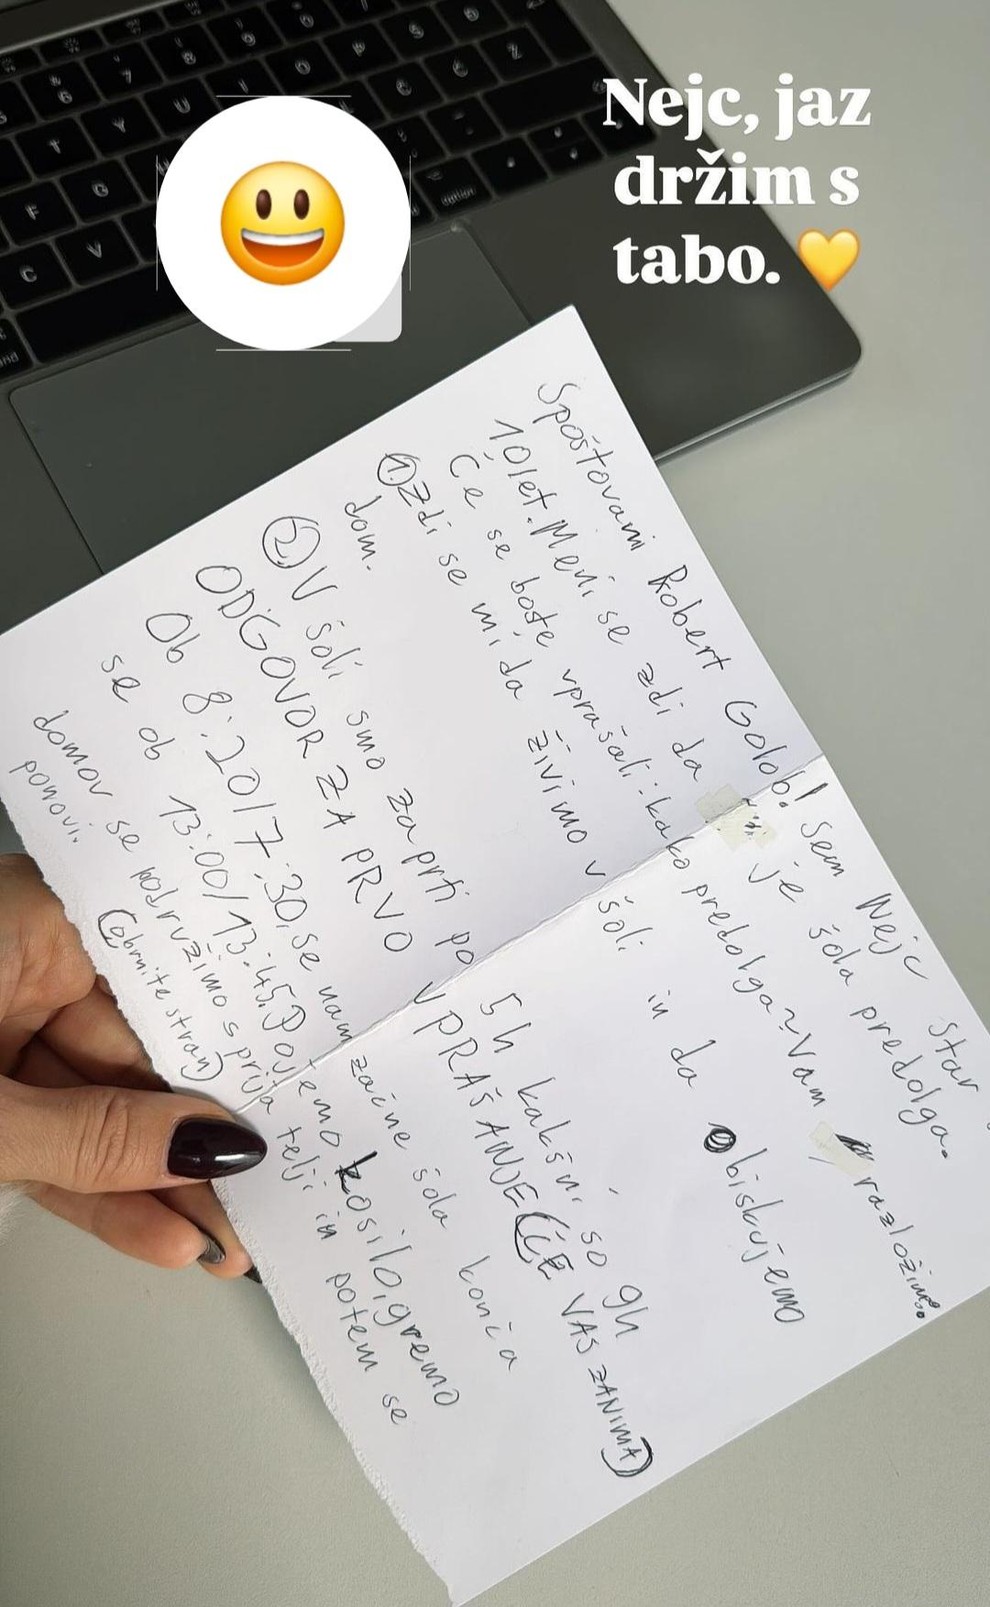 Nejc, jaz
držim s
tabo. 💛
Spoštovani Robert Golob! Sem Nejc star
10 let. Meni se zdi da je šola predolga.
Če se boste vprašali: kako predolga? Vam razložim:
① Zdi se mi da živimo v šoli in da obiskujemo
dom.
② V šoli smo zaprti po 5h kakšni so 9h
ODGOVOR ZA PRVO VPRAŠANJE (ČE VAS ZANIMA)
Ob 8:20/7:30, se nam začne šola konča
se ob 13:00/13:45. Pojemo kosilo, gremo
domov se podružimo s prijatelji in potem se
ponovi.
(obrnite stran)